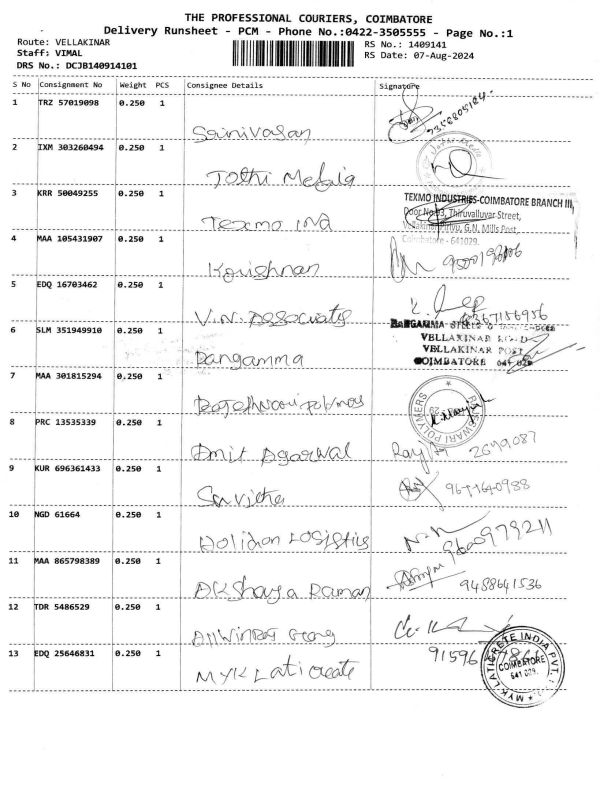 THE PROFESSIONAL COURIERS, COIMBATORE
Delivery Runsheet - PCM - Phone No.:0422-3505555 - Page No.:1
Route: VELLAKINAR
RS No.: 1409141
Staff: VIMAL
RS Date: 07-Aug-2024
DRS No.: DCJB140914101
S No Consignment No Weight PCS Consignee Details Signature
1 TRZ 57019098 0.250 1
Srinivasan
2 IXM 303260494 0.250 1
Jothi
3 KRR 50049255 0.250 1
TEXMO INDUSTRIES-COIMBATORE BRANCH III,
Door No.93, Thiruvalluvar Street,
Vellakinar Pirivu, G.N. Mills Post,
Coimbatore - 641029.
Texmo IND
4 MAA 105431907 0.250 1
Krishnan
5 EDQ 16703462 0.250 1
V.N. Associates
6 SLM 351949910 0.250 1
VELLAKINAR ROAD
VELLAKINAR POST
COIMBATORE 641 029
Rangamma
7 MAA 301815294 0.250 1
Rajeshwari Polymers
RAJESWARI POLYMERS
8 PRC 13535339 0.250 1
Amit Agarwal
9 KUR 696361433 0.250 1
Savitha
10 NGD 61664 0.250 1
Logistics
9600979211
11 MAA 865798389 0.250 1
Akshaya Raman
9488641536
12 TDR 5486529 0.250 1
13 EDQ 25646831 0.250 1
MYK Laticreate
MYK LATICRETE INDIA PVT.
COIMBATORE
641 029.